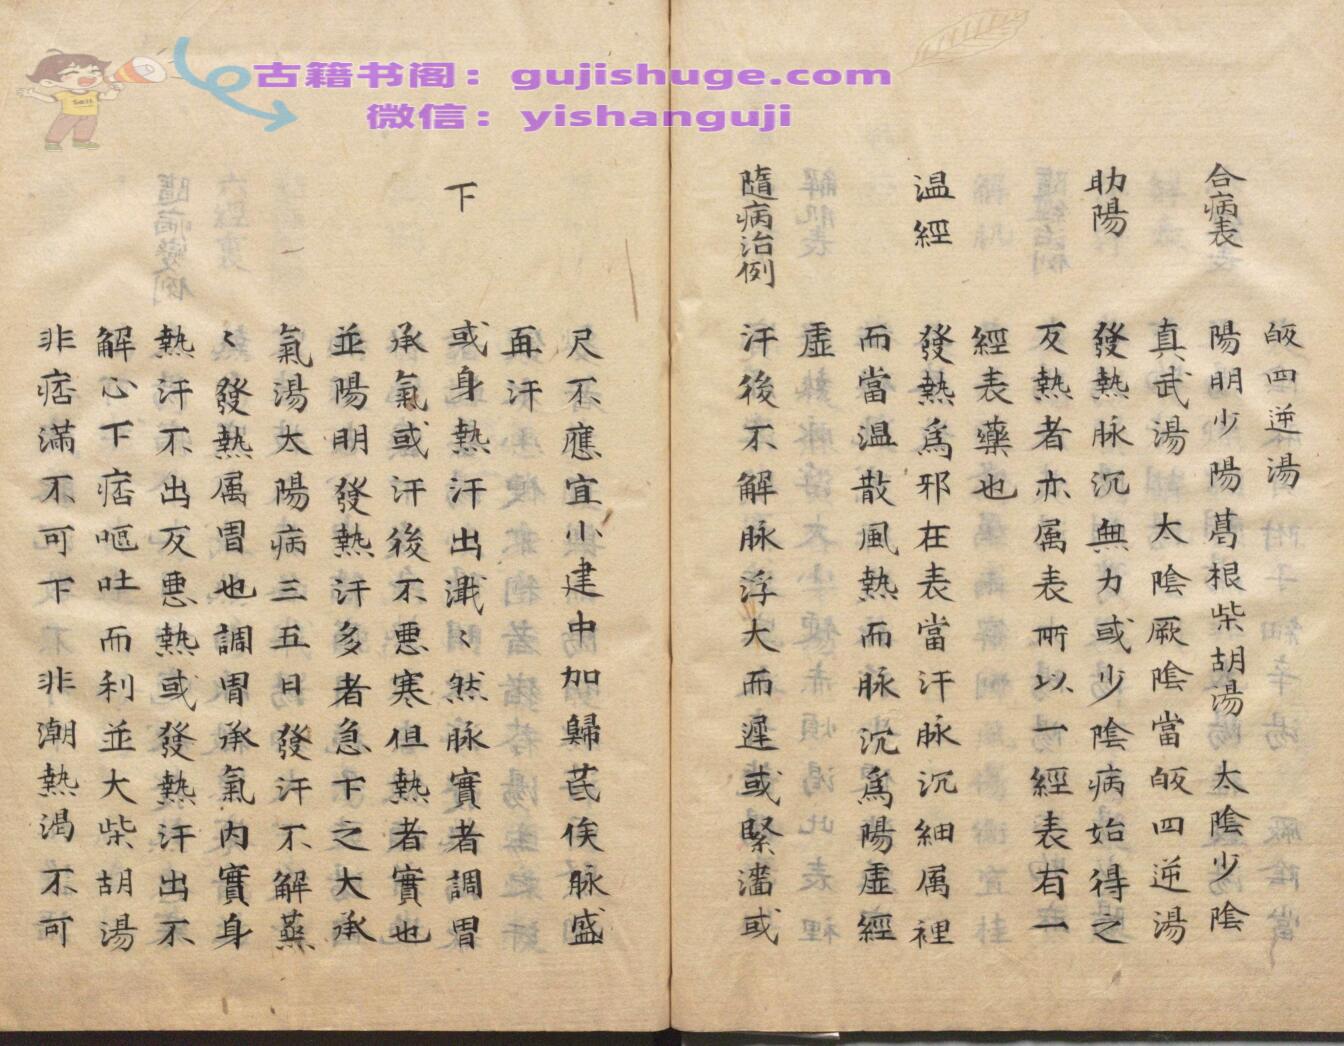 古籍书阁：gujishuge.com
微信：yishanguji
㕮四逆湯
合病表
陽明少陽葛根柴胡湯　太陰少陰
真武湯　太陰厥陰當㕮四逆湯
助陽
發熱脉沉無力或少陰病始得之
反熱者亦属表所以一經表有一
經表藥也
温經
發熱爲邪在表當汗脉沉細属裡
而當温散風熱而脉沈爲陽虛經
虛
隨病治例
汗後不解脉浮大而遲或緊濇或
尺不應宜小建中加歸芪俟脉盛
再汗
下
或身熱汗出濈〻然脉實者調胃
承氣或汗後不悪寒但熱者實也
並陽明發熱汗多者急下之大承
氣湯太陽病三五日發汗不解蒸
〻發熱属胃也調胃承氣内實身
熱汗不出反悪熱或發熱汗出不
解心下痞嘔吐而利並大柴胡湯
非痞滿不可下非潮熱渇不可